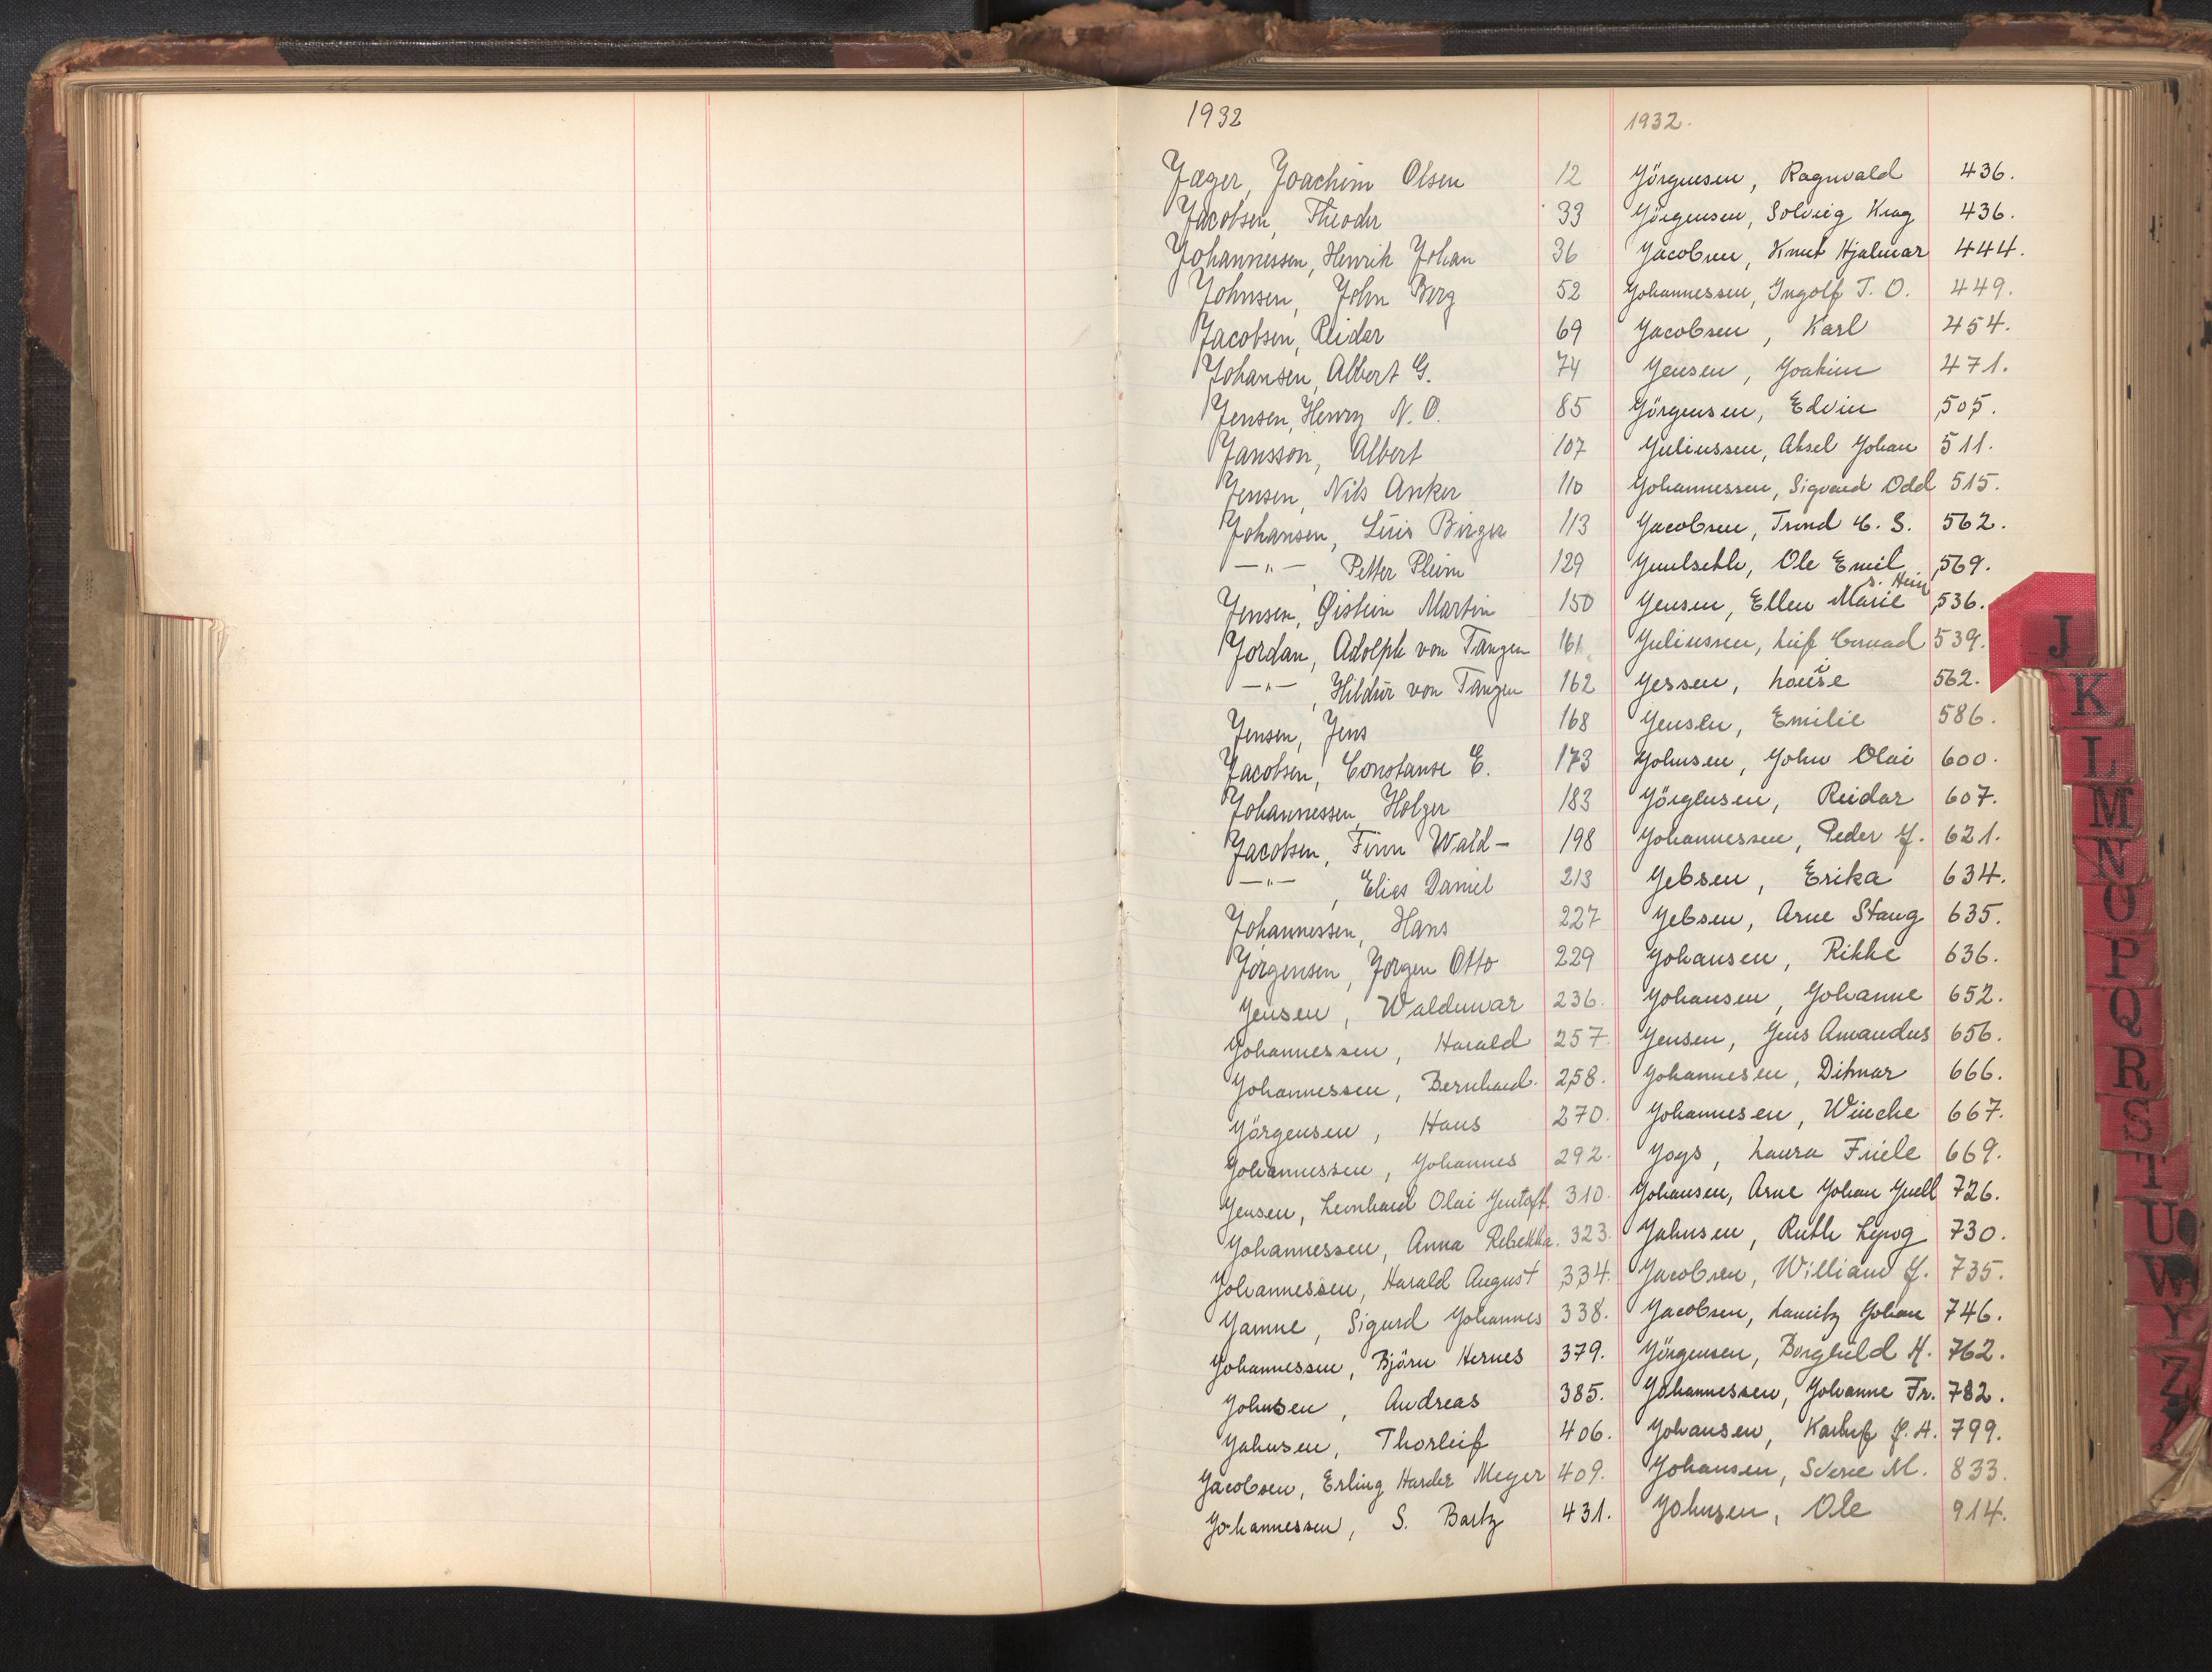 1932
Jæger, Joachim Olsen 12
Jacobsen, Theodor 33
Johannessen, Henrik Johan 36
Johnsen, John Berg 52
Jacobsen, Reidar 69
Johansen, Albert G. 74
Jensen, Henry N. O. 85
Jansson, Albert 107
Jensen, Nils Anker 110
Johansen, Luis Birger 113
—"— , Petter Pleim 129
Jensen, Øistein Martin 150
Jordan, Adolph von Tangen 161
—"— , Hildur von Tangen 162
Jensen, Jens 168
Jacobsen, Constanse E. 173
Johannessen, Holger 183
Jacobsen, Finn Wald- 198
—"— , Elias Daniel 213
Johannessen, Hans 227
Jörgensen, Jörgen Otto 229
Jensen, Waldemar 236.
Johannessen, Harald 257.
Johannessen, Bernhard. 258.
Jörgensen, Hans 270.
Johannessen, Johannes 292.
Jensen, Leonhard Olai 310.
Johannessen, Anna Rebekka. 323.
Johannessen, Harald August 334.
Jamne, Sigurd Johannes 338.
Johannessen, Björn Hernes 379.
Johnsen, Andreas 385.
Jahnsen, Thorleif 406.
Jacobsen, Erling Harder Meyer 409.
Johannessen, S. Bartz 431.
1932.
Jörgensen, Ragnvald 436.
Jörgensen, Solveig Krag 436.
Jacobsen, Knut Hjalmar 444.
Johannessen, Ingolf T. O. 449.
Jacobsen, Karl 454.
Jensen, Joakim 471.
Jörgensen, Edvin 505.
Juliussen, Aksel Johan 511.
Johannessen, Sigvard Odd 515.
Jacobsen, Trond C. S. 562.
Ole Emil 569.
Jensen, Ellen Marie s. Hein 536.
Juliussen, Leif Conrad 539.
Jessen, Louise 562.
Jensen, Emilie 586.
Johnsen, John Olai 600.
Jörgensen, Reidar 607.
Johannessen, Peder J. 621.
Jebsen, Erika 634.
Jebsen, Arne Stang 635.
Johansen, Rikke 636.
Johansen, Johanne 652.
Jensen, Jens Amandus 656.
Johannesen, Ditmar 666.
Johannesen, Wincke 667.
Joys, Laura Friele 669.
Johansen, Arne Johan Juell 726.
Jahnsen, Ruth 730.
Jacobsen, William J. 735.
Jacobsen, Lauritz Johan 746.
Jörgensen, Borghild H. 762.
Johannessen, Johanne Fr. 782.
Johansen, Karluf J. A. 799.
Johansen, Sverre M. 833.
Johnsen, Ole 914.
J
K
L
M
N
O
P
Q
R
S
T
U
W
Y
Z